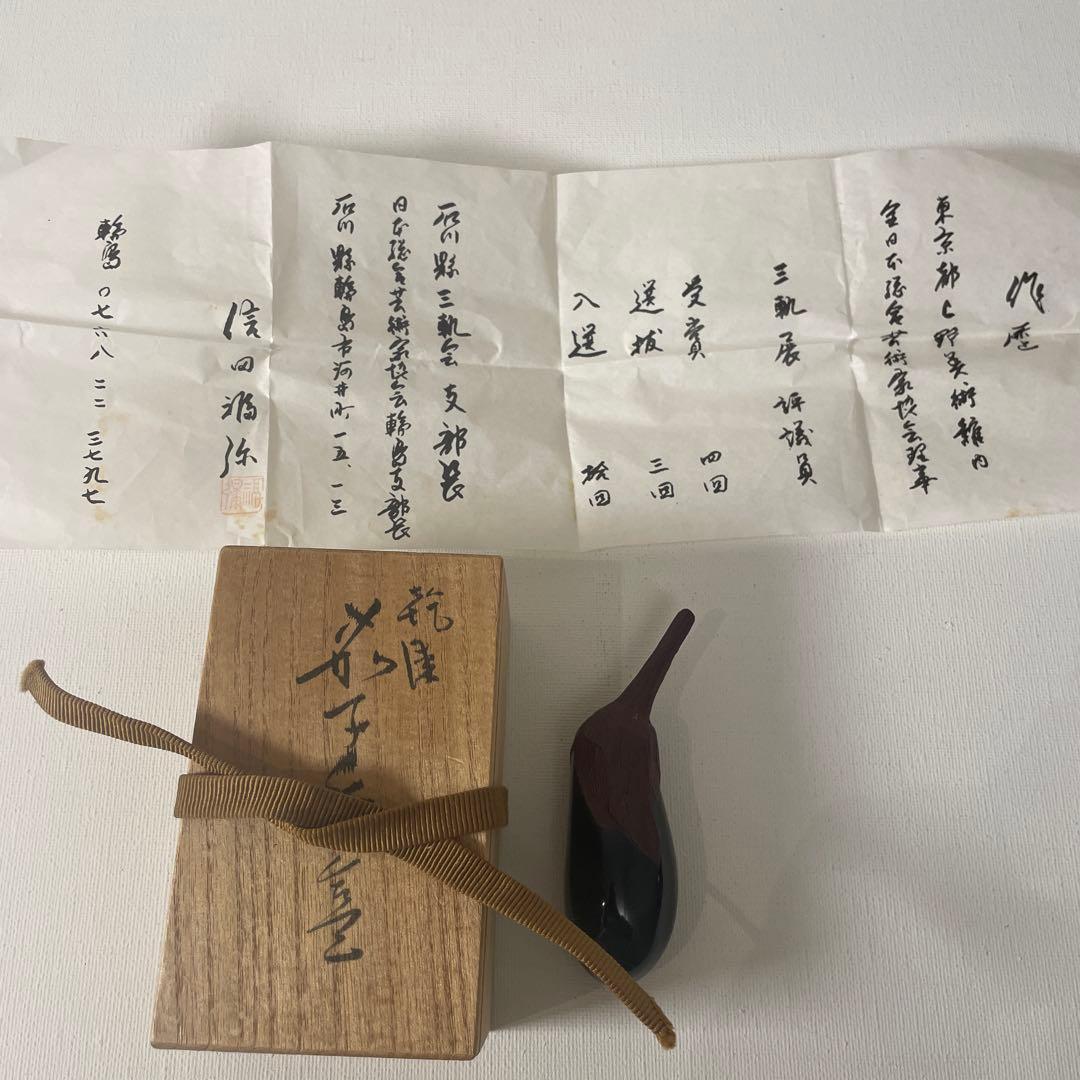 作歴
東京都上野美術館内
全日本総合芸術家協会理事
三軌展 評議員
受賞 四回
選抜 三回
入選 拾回
石川縣三軌会支部長
日本総合芸術家協会輪島支部長
石川縣輪島市河井町一五、一三
信田
輪島 〇七六八 二二 三七九七
乾漆
茄子